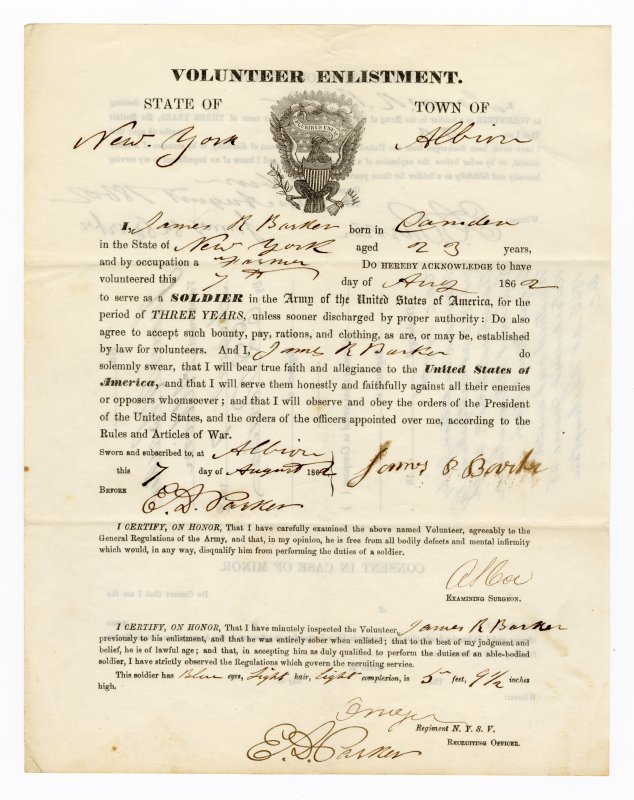 VOLUNTEER ENLISTMENT.
STATE OF TOWN OF
New. York Albion
I, James R Barker born in Camden
in the State of New York aged 23 years,
and by occupation a Farmer Do HEREBY ACKNOWLEDGE to have
volunteered this 7th day of Aug 1862
to serve as a SOLDIER in the Army of the United States of America, for the
period of THREE YEARS, unless sooner discharged by proper authority: Do also
agree to accept such bounty, pay, rations, and clothing, as are, or may be, established
by law for volunteers. And I, James R Barker do
solemnly swear, that I will bear true faith and allegiance to the United States of
America, and that I will serve them honestly and faithfully against all their enemies
or opposers whomsoever; and that I will observe and obey the orders of the President
of the United States, and the orders of the officers appointed over me, according to the
Rules and Articles of War.
Sworn and subscribed to, at Albion
this 7 day of August 1862 James R Barker
BEFORE
E. D. Parker
I CERTIFY, ON HONOR, That I have carefully examined the above named Volunteer, agreeably to the
General Regulations of the Army, and that, in my opinion, he is free from all bodily defects and mental infirmity
which would, in any way, disqualify him from performing the duties of a soldier.
EXAMINING SURGEON.
I CERTIFY, ON HONOR, That I have minutely inspected the Volunteer, James R Barker
previously to his enlistment, and that he was entirely sober when enlisted; that to the best of my judgment and
belief, he is of lawful age; and that, in accepting him as duly qualified to perform the duties of an able-bodied
soldier, I have strictly observed the Regulations which govern the recruiting service.
This soldier has Blue eyes, Light hair, light complexion, is 5 feet, 9 1/2 inches
high.
Regiment N. Y. S. V.
E. D. Parker RECRUITING OFFICER.